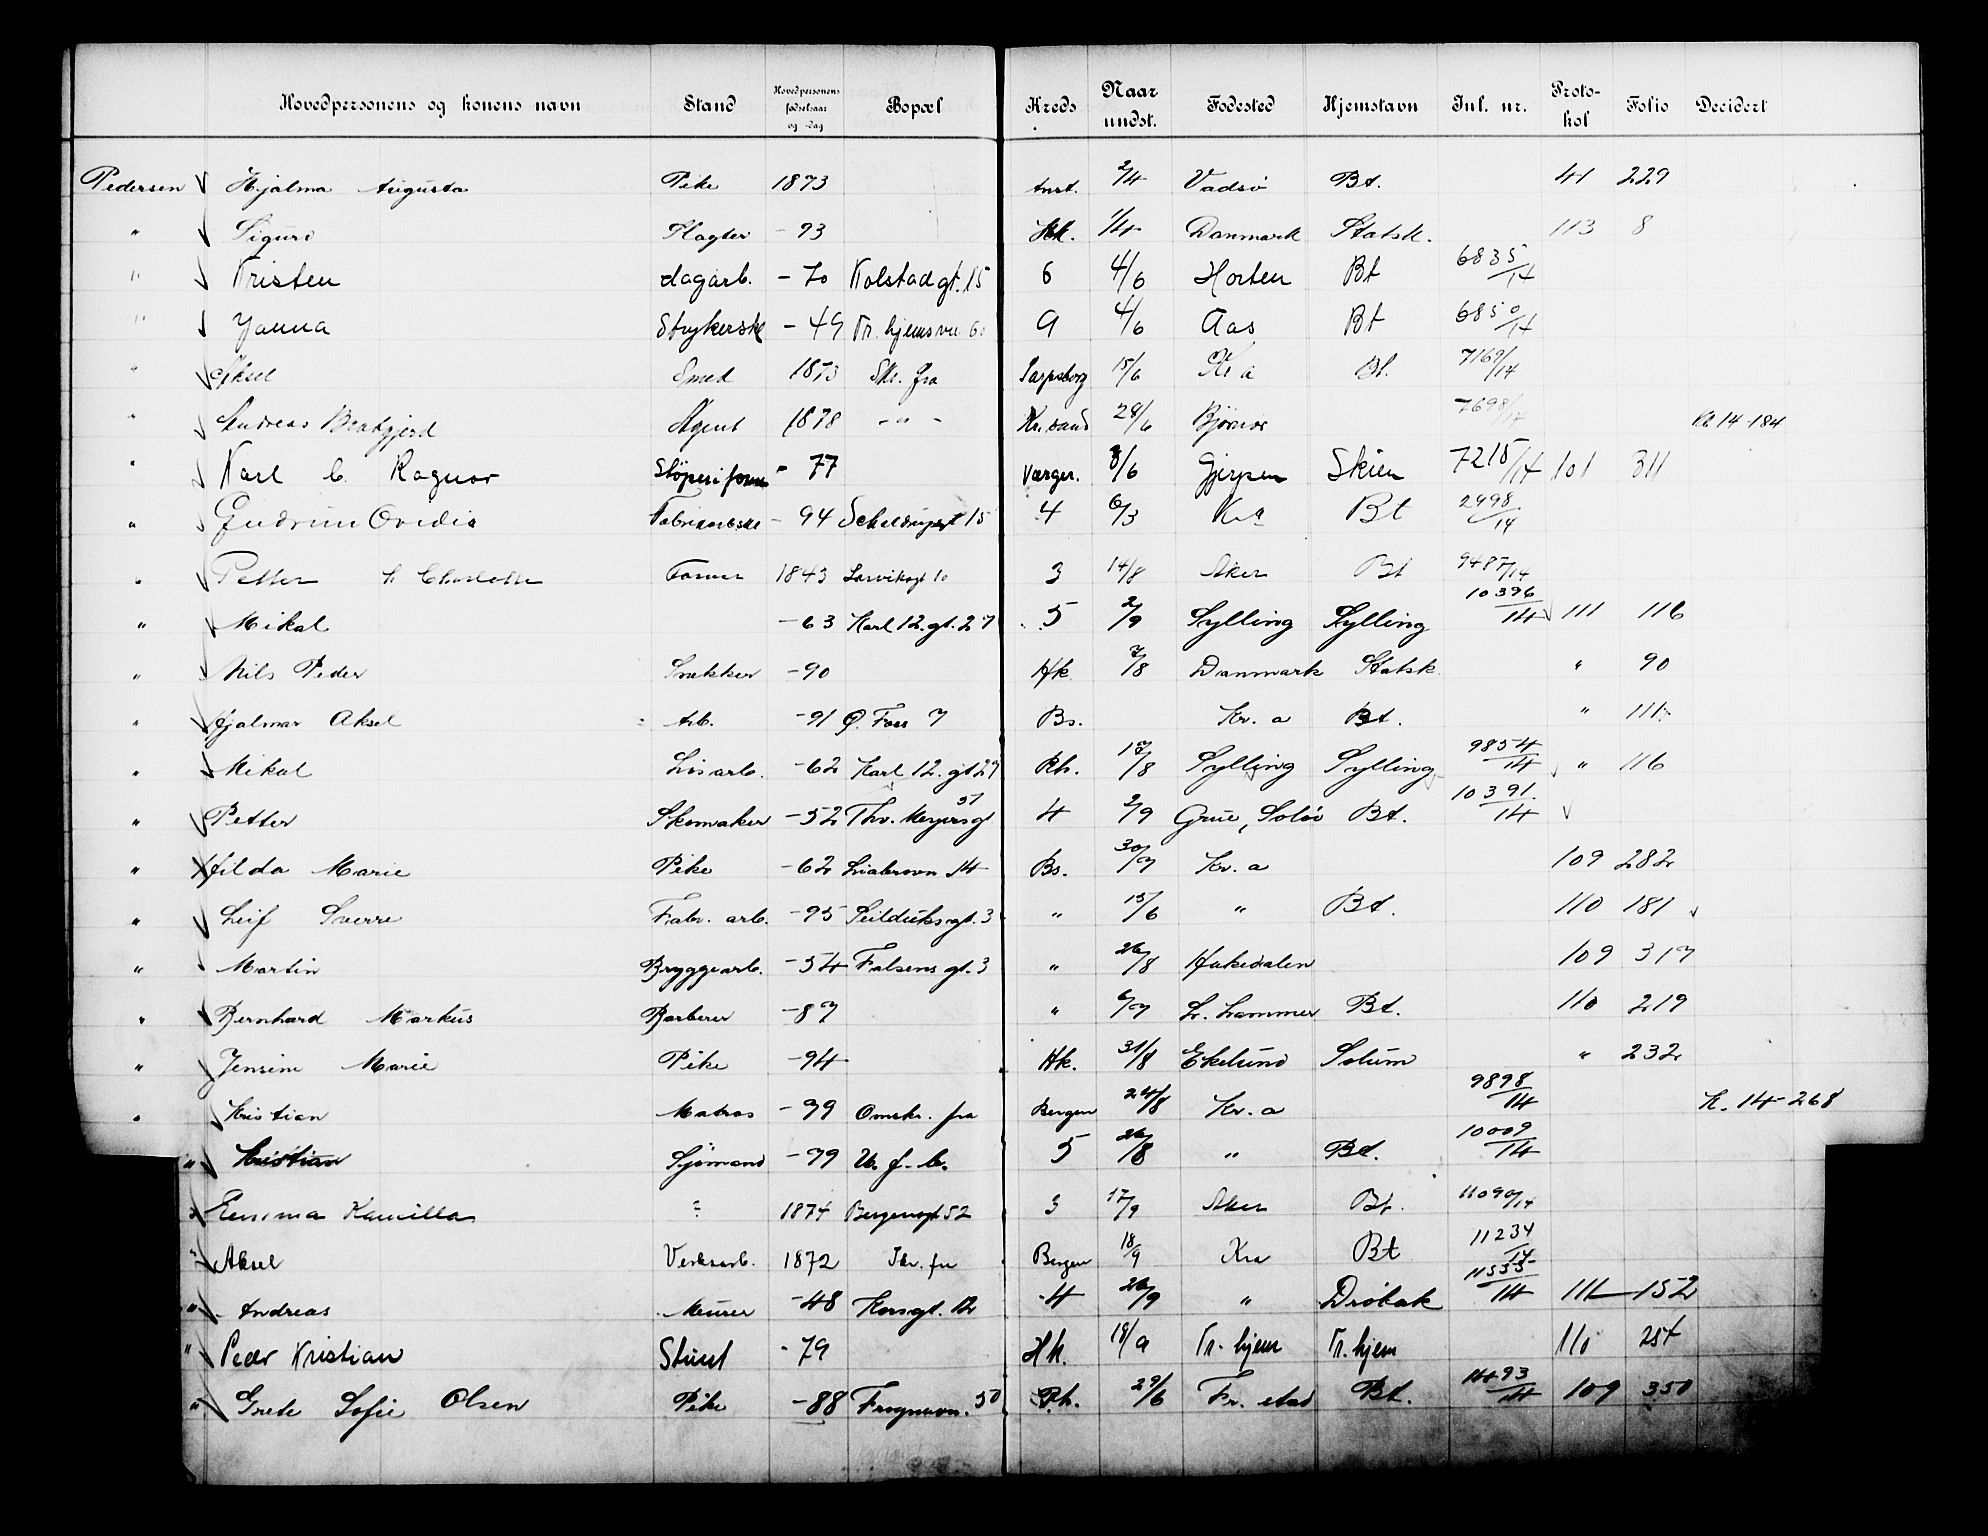 Hovedpersonens og konens navn Stand Hovedpersonens fødselsaar og -dag Bopæl Kreds Naar undst. Fødested Hjemstavn Inl. nr. Proto-kol Folio Decidert
Pedersen Hjalma Augusta Pike 1873 Anst. 2/4 Vadsø Bt. 41 229
" Sigurd Slagter - 93 Hk. 1/4 Danmark Statsk. 113 8
" Kristen dagarb. - 70 Kolstadgt. 15 6 4/6 Horten Bt 6835/14
" Janna Strykerske - 49 Tr. hjemsvn. 60 9 4/6 Aas Bt 6850/14
" Aksel Smed 1873 Skr. fra Sarpsborg 15/6 Kr a Bt. 7169/14
" Andreas Agent 1878 - " - Kr. sand 28/6 Bjørnør 7698/14 K 14-184
" Karl C. Ragnar Støperiform - 77 Værger. 8/6 Gjerpen Skien 7215/14 101 311
" Gudrun Ovidia Fabrikarbske - 94 15 4 6/3 Kra Bt 2998/14
" Petter & Charlotte Farver 1843 Larvikgt 10 3 14/8 Aker Bt 9487/14
" Mikal - 63 Karl 12. gt. 27 5 2/9 Sylling Sylling 10396/14 111 116
" Nils Peder Snekker - 90 Hk. 7/8 Danmark Statsk " 90
" Hjalmar Aksel Arb. - 91 Ø. Foss 7 Bs. Kr. a Bt. " 111
" Mikal Løsarb. - 62 Karl 12. gt 27 Rh. 17/8 Sylling Sylling 9854/14 " 116
" Petter Skomaker - 52 Thv. Meyersgt 51 4 2/9 Grue, Solør Bt. 10391/14
" Hilda Marie Pike - 62 Liabrovn 14 Bs. 30/7 Kr. a 109 282
" Leif Sverre Fabr. arb. - 95 Seilduksgt. 3 " 15/6 " Bt. 110 181
" Martin Bryggearb. - 54 Falsens gt. 3 " 26/8 Hakedalen 109 317
" Bernhard Markus Barberer - 87 " 6/7 L. hammer Bt. 110 219
" Jensine Marie Pike - 94 Hk. 31/8 Ekelund Solum " 232
" Kristian Matros - 99 Omskr. fra Bergen 24/8 Kr. a 9898/14 K. 14-268
" Kristian Sjømand - 99 U. f. b. 5 26/8 " Bt. 10009/14
" Emma Kamilla 1874 Bergensgt 52 3 17/9 Aker Bt. 11090/14
" Aksel Verksarb. 1872 Skr. fra Bergen 18/9 Kra Bt 11234/14
" Andreas Murer - 48 Korsgt. 12 4 26/9 " Drøbak 11535/14 111 152
" Peder Kristian Stuert - 79 Hk. 18/9 Tr. hjem Tr. hjem 110 254
" Grete Sofie Olsen Pike - 88 Frognervn. 50 Rh. 29/6 Fr. stad Bt. 14493/14 109 350